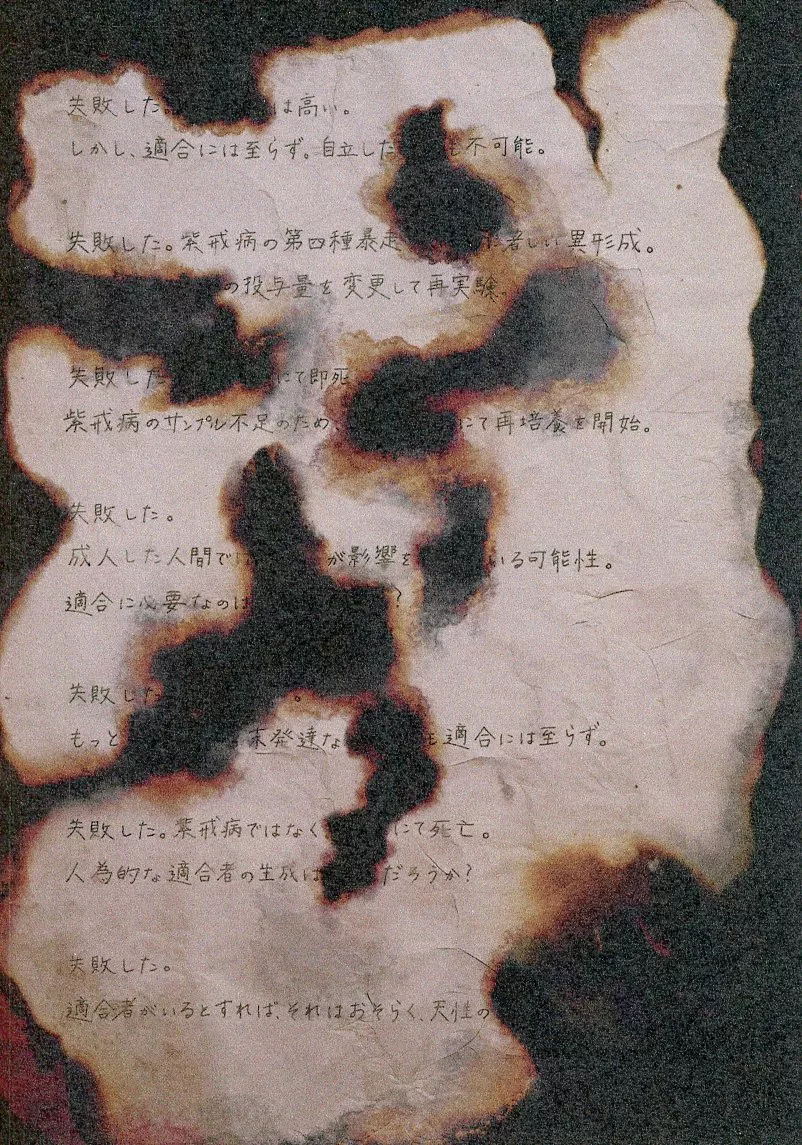 失敗した。 は高い。
しかし、適合には至らず。自立した も不可能。
失敗した。紫戒病の第四種暴走 著しい異形成。
の投与量を変更して再実験
失敗した にて即死
紫戒病のサンプル不足のため、 にて再培養を開始。
失敗した。
成人した人間では が影響を いる可能性。
適合に必要なのは ?
失敗した 。
もっと 未発達な も適合には至らず。
失敗した。紫戒病ではなく にて死亡。
人為的な適合者の生成は だろうか?
失敗した。
適合者がいるとすれば、それはおそらく、天性の